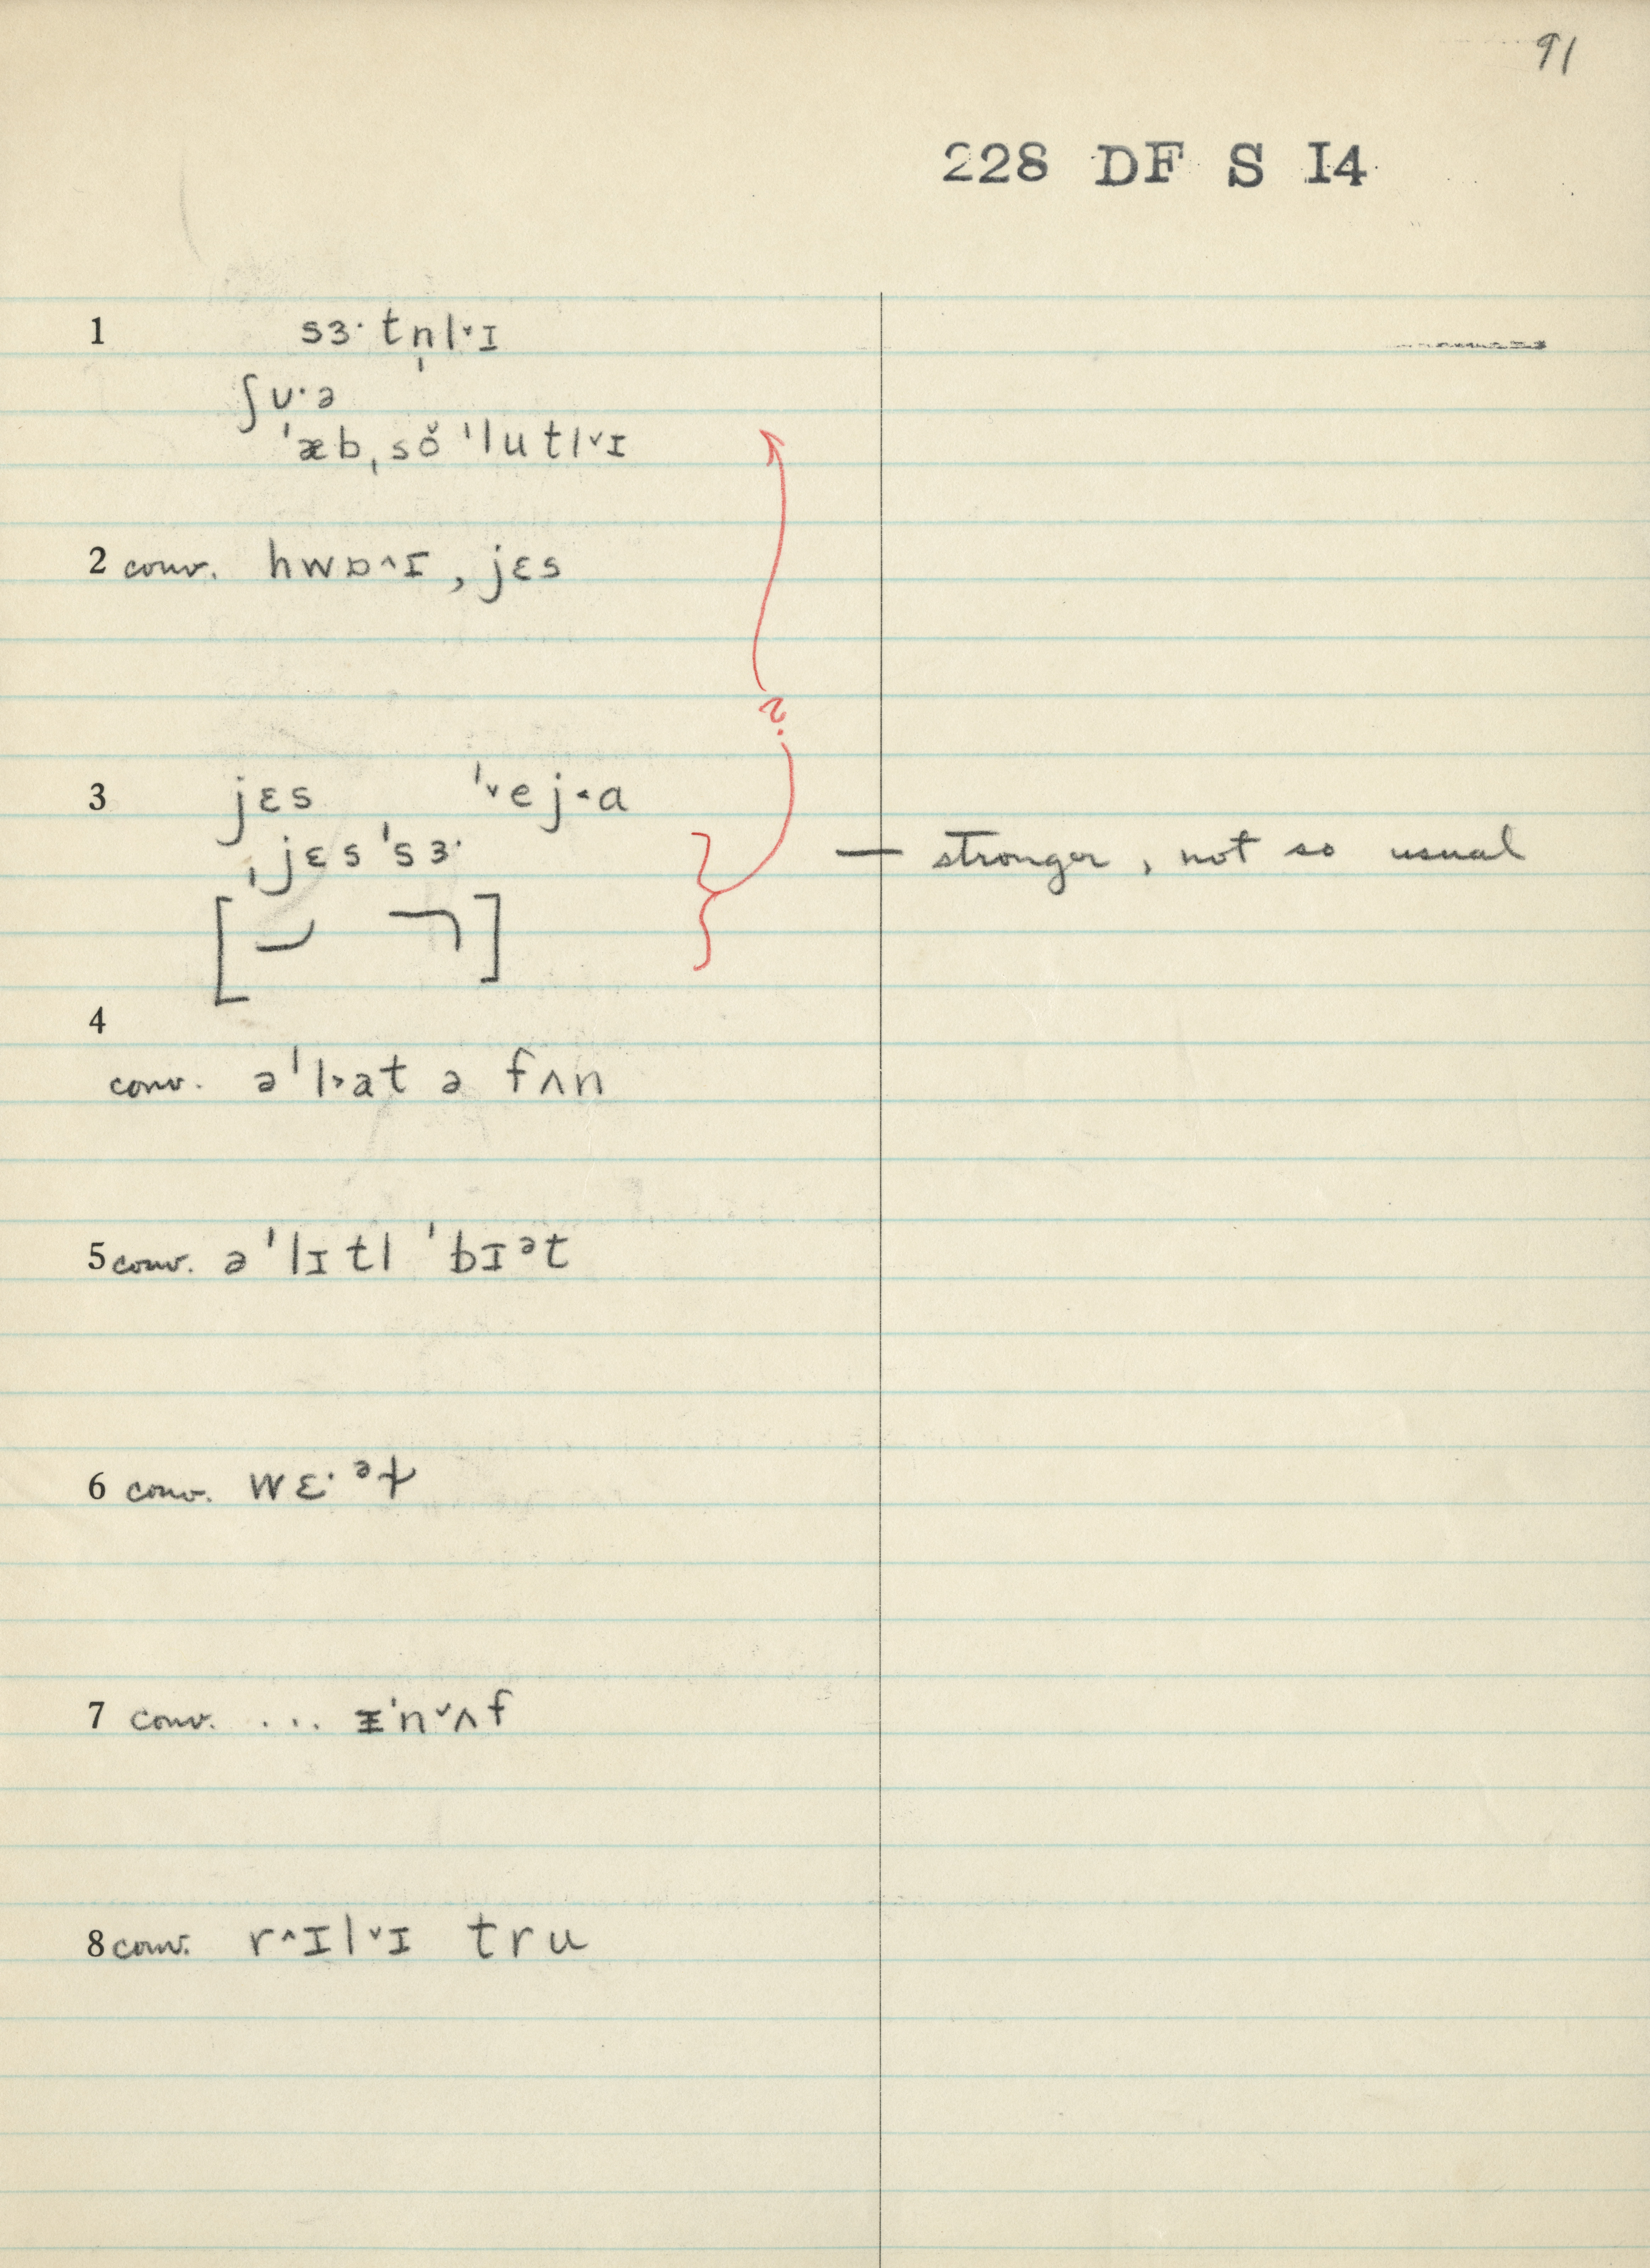 91
228 DF S I4
1 sɜ· tn̩l˅ɪ
ʃʊ·ə
ˈæbˌsŏˈlutl˅ɪ
2 conv. hwɒ˄ɪ, jɛs
?
3 jɛs ˈ˅ej˂a
ˌjɛsˈsɜ· — stronger, not so usual
4
conv. əˈl˃at ə fʌn
5 conv. əˈlɪtl ˈbɪᵊt
6 conv. wɛ·ᵊɫ
7 conv. ... ɪˈn˅ʌf
8 conv. r˄ɪl˅ɪ tru